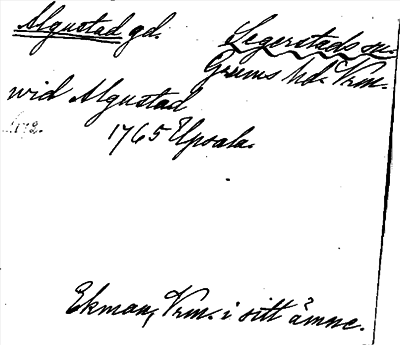 Algustad gd.
Segerstads sn.
Grums hd. Vrm.
wid Algustad
1765 Upsala.
Ekman, Vrm. i sitt ämne.